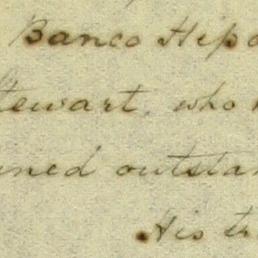 Banco Hipo
tewart, who
ined outstan
His tr